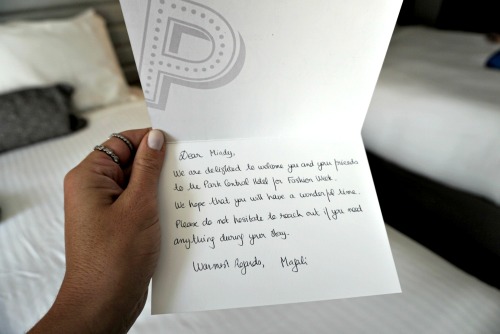 P
Dear Mindy,
We are delighted to welcome you and your friends
to the Park Central Hotel for Fashion Week.
We hope that you will have a wonderful time.
Please do not hesitate to reach out if you need
anything during your stay.
Warmest Regards, Magali